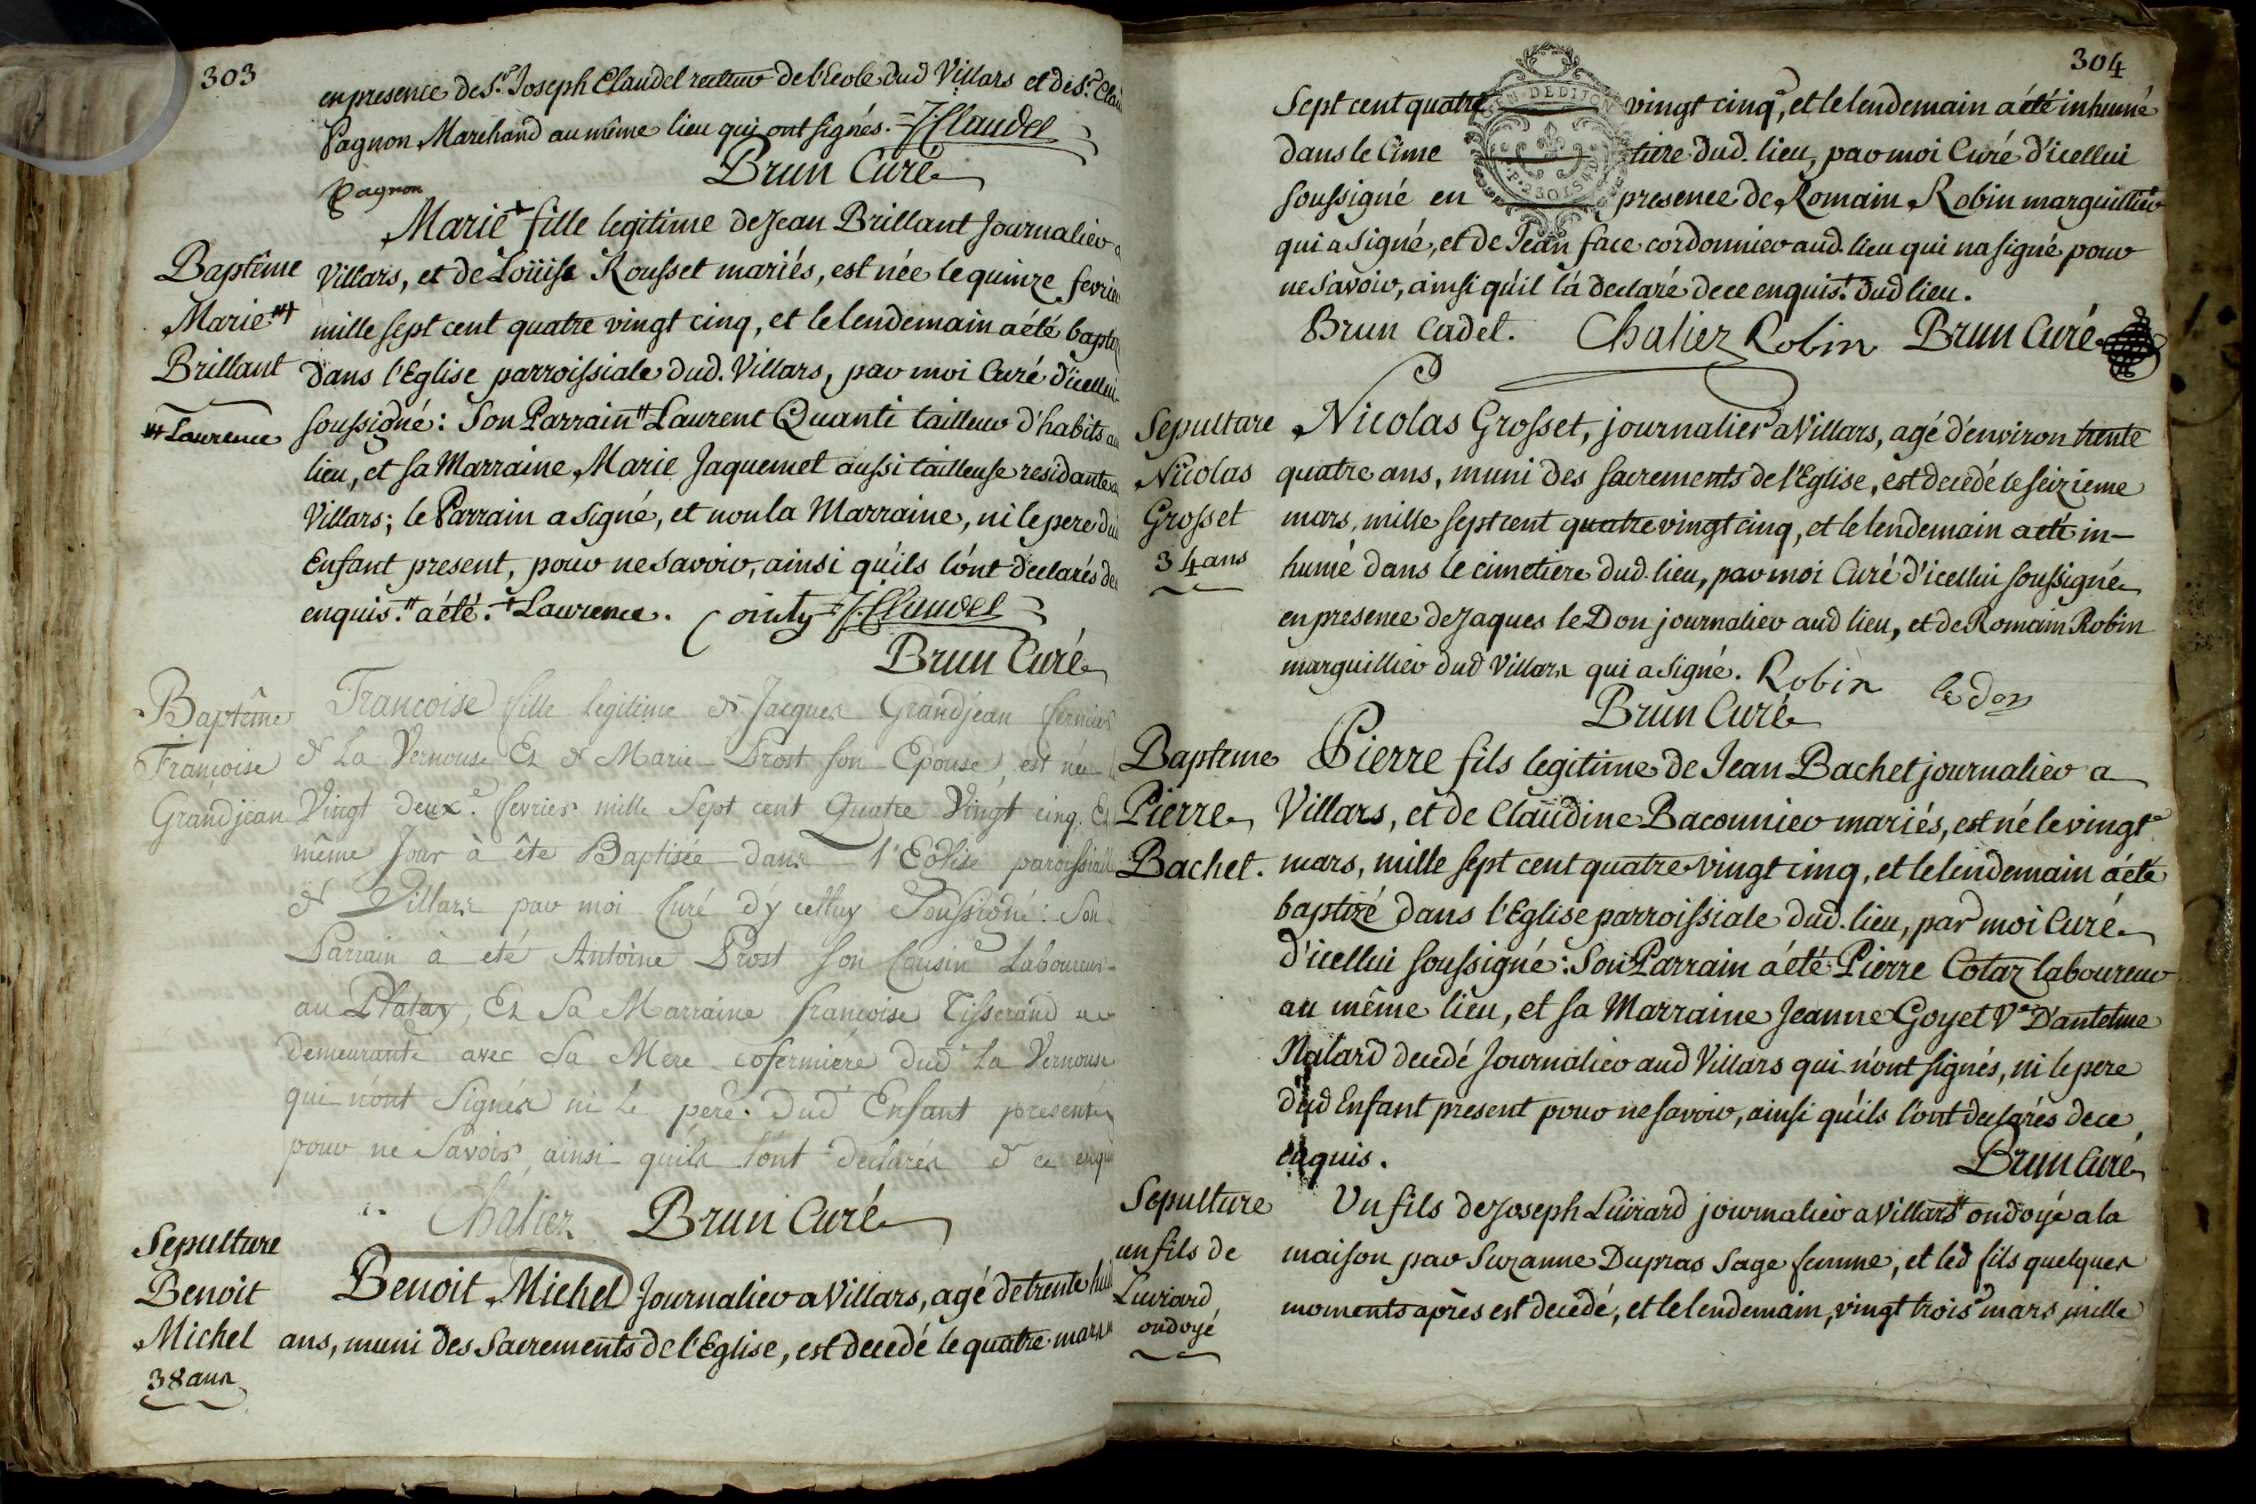 303
en presence de Sr. Joseph Claudel recteur de l'Ecole dud Villars et de Sr.
Pagnon Marchand au même lieu qui ont signés. J. Claudel
Brun Curé
Pagnon
Marie + fille legitime de Jean Brillant Journalier
Baptême
Marie
Brillant
Laurence
Villars, et de Loüise Rousset mariés, est née le quinze fevrier
mille sept cent quatre vingt cinq, et le lendemain a été
dans l'Eglise parroissiale dud. Villars, par moi Curé d'icellui
soussigné: Son Parrain Laurent Quanti tailleur d'habits au
lieu, et sa Marraine Marie Jaquemet aussi tailleuse residante
Villars; le Parrain a signé, et non la Marraine, ni le pere
Enfant present, pour ne savoir, ainsi qu'ils l'ont declarés de
enquis. a été. + Laurence. J. Claudel
Brun Curé
Baptême
Francoise
Grandjean
Francoise fille legitime de Jacques Grandjean fermier
de La Vernouse Et de Marie Prost son Epouse, est née
Vingt deuxe. fevrier mille Sept cent Quatre Vingt cinq. Et
même Jour à été Baptisée dans l'Eglise paroissialle
de Villars par moi Curé d'y celluy Soussigné: Son
Parrain à eté Antoine Prost son Cousin Laboureur
au Platay, Et Sa Marraine francoise Tisserand
demeurante avec Sa Mere cofermière dud La Vernouse
qui n'ont Signés ni le pere dud Enfant present
pour ne Savoir ainsi qu'ils l'ont declarés de ce
Chaliez Brun Curé
Sepulture
Benoit
Michel
38 ans
Benoit Michel Journalier a Villars, agé de trente huit
ans, muni des Sacrements de l'Eglise, est decedé le quatre mars
304
Sept cent quatre vingt cinq, et le lendemain a été inhumé
dans le Cime tiere dud. lieu, par moi Curé d'icellui
soussigné en presence de Romain Robin marguillier
qui a signé, et de Jean face cordonnier aud. lieu qui na signé pour
ne savoir, ainsi qu'il l'a declaré de ce enquis. dud lieu.
Brun Cadet. Chaliez Robin Brun Curé
Sepulture
Nicolas
Grosset
34 ans
Nicolas Grosset, journalier a Villars, agé d'environ trente
quatre ans, muni des sacrements de l'Eglise, est decedé le seizieme
mars, mille sept cent quatre vingt cinq, et le lendemain a eté in-
humé dans le cimetiere dud. lieu, par moi Curé d'icellui soussigné
en presence de Jaques le Don journalier aud lieu, et de Romain Robin
marguillier dud Villars qui a signé. Robin le don
Brun Curé
Bapteme
Pierre
Bachet.
Pierre fils legitime de Jean Bachet journalier a
Villars, et de Claudine Baconnier mariés, est né le vingte
mars, mille sept cent quatre vingt cinq, et le lendemain a été
baptizé dans l'Eglise parroissiale dud. lieu, par moi Curé
d'icellui soussigné: Son Parrain a été Pierre Cotaz laboureur
au même lieu, et sa Marraine Jeanne Goyet Ve. D'antelme
Nalard decedé Journalier aud Villars qui n'ont signés, ni le pere
dud Enfant present pour ne savoir, ainsi qu'ils l'ont declarés de ce
enquis.
Brun Curé
Sepulture
un fils de
Luirard
ondoyé
Un fils de Joseph Luirard journalier a Villars ondoyé a la
maison par Suzanne Dupras Sage femme, et led fils quelques
moments après est decedé, et le lendemain, vingt trois mars mille